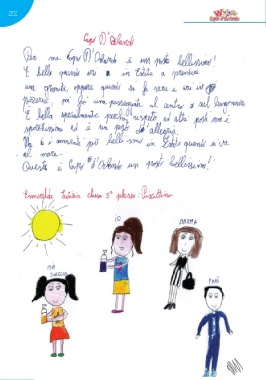 22
Capo D'Orlando
Per me Capo D'Orlando è un posto bellissimo!
È bello quando era in Estate a prendere
una granita, oppure quando si fa sera e si va in
pizzeria, per fare una passeggiata al centro o sul lungomare
È bella specialmente perché rispetto ad altri posti non è
sporchissimo ed è un posto di allegria.
Ma è veramente più bellissimo in Estate quando si va
al mare.
Questo è Capo d'Orlando un posto bellissimo!
classe 5° plesso: Piscittina
IO
MAMMA
MIA
SORELLA
PAPÀ